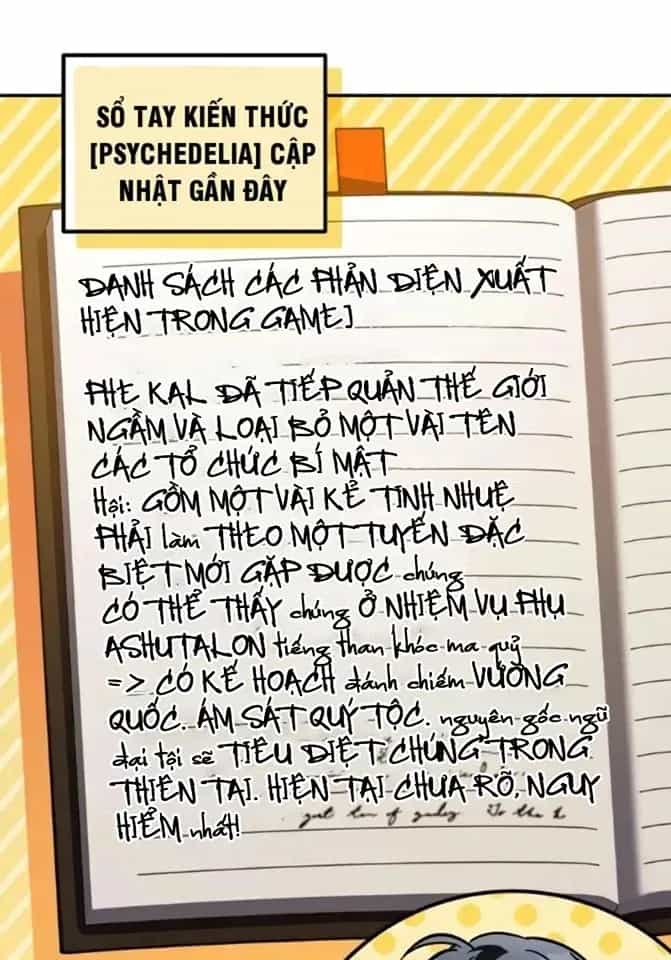 SỔ TAY KIẾN THỨC
[PSYCHEDELIA] CẬP
NHẬT GẦN ĐÂY
DANH SÁCH CÁC PHẢN DIỆN XUẤT
HIỆN TRONG GAME]
PHE KAL ĐÃ TIẾP QUẢN THẾ GIỚI
NGẦM VÀ LOẠI BỎ MỘT VÀI TÊN
CÁC TỔ CHỨC BÍ MẬT
Hội: GỒM MỘT VÀI KẺ TINH NHUỆ
PHẢI làm THEO MỘT TUYẾN ĐẶC
BIỆT MỚI GẶP ĐƯỢC chúng
CÓ THỂ THẤY chúng Ở NHIỆM VỤ PHỤ
ASHUTALON tiếng than khóc ma quỷ
=> CÓ KẾ HOẠCH đánh chiếm VƯƠNG
QUỐC. ÁM SÁT QUÝ TỘC. nguyên gốc ngũ
đại tội sẽ TIÊU DIỆT CHÚNG TRONG
THIÊN TAI. HIỆN TẠI CHƯA RÕ, NGUY
HIỂM nhất!